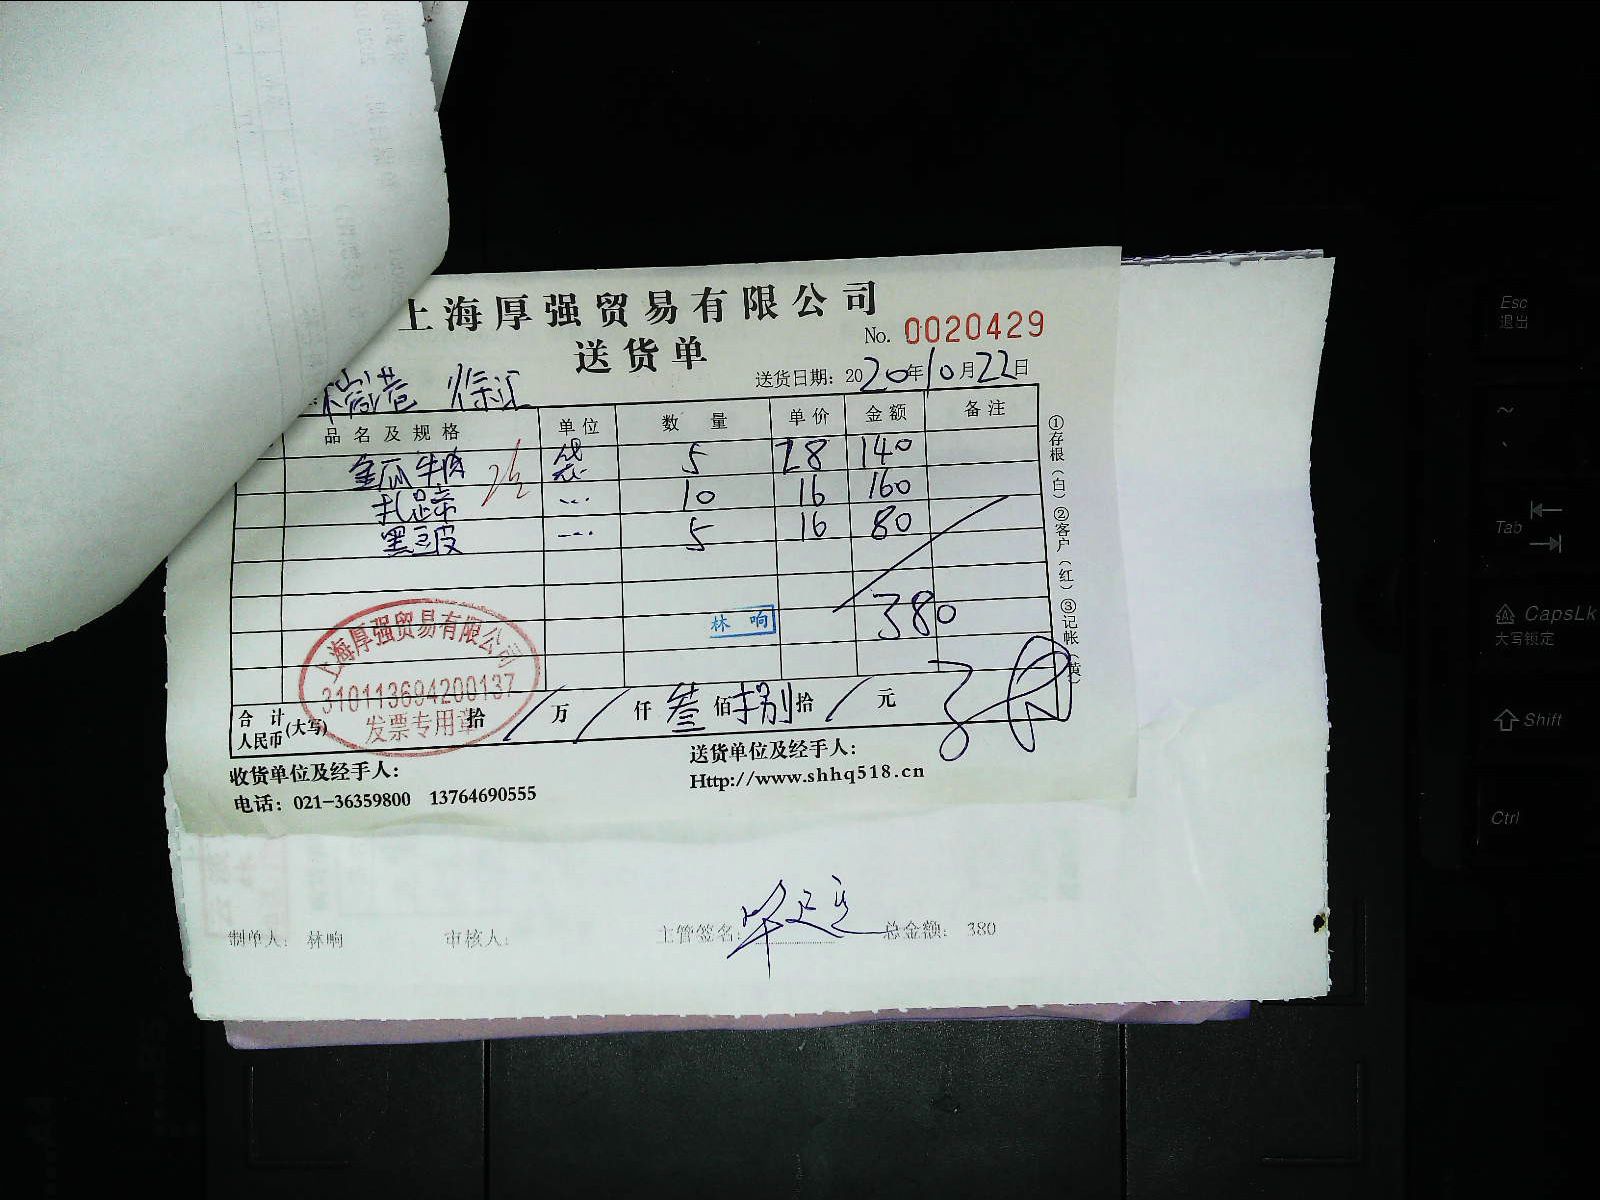 上海厚强贸易有限公司
No. 0020429
送货单
送货日期: 2020年10月22日
徐汇
品名及规格 单位 数量 单价 金额 备注
金瓜牛肉 袋 5 28 140
扎蹄 ... 10 16 160
黑豆皮 ... 5 16 80
林响
380
上海厚强贸易有限公司
310113694200137
发票专用章
合计人民币(大写) 拾 / 万 / 仟 叁 佰 捌 拾 / 元
①存根(白)②客户(红)③记帐(黄)
收货单位及经手人:
送货单位及经手人:
电话: 021-36359800 13764690555
Http://www.shhq518.cn
制单人: 林响 审核人: 主管签名: 总金额: 380
Esc
退出
~
`
Tab
CapsLk
大写锁定
Shift
Ctrl